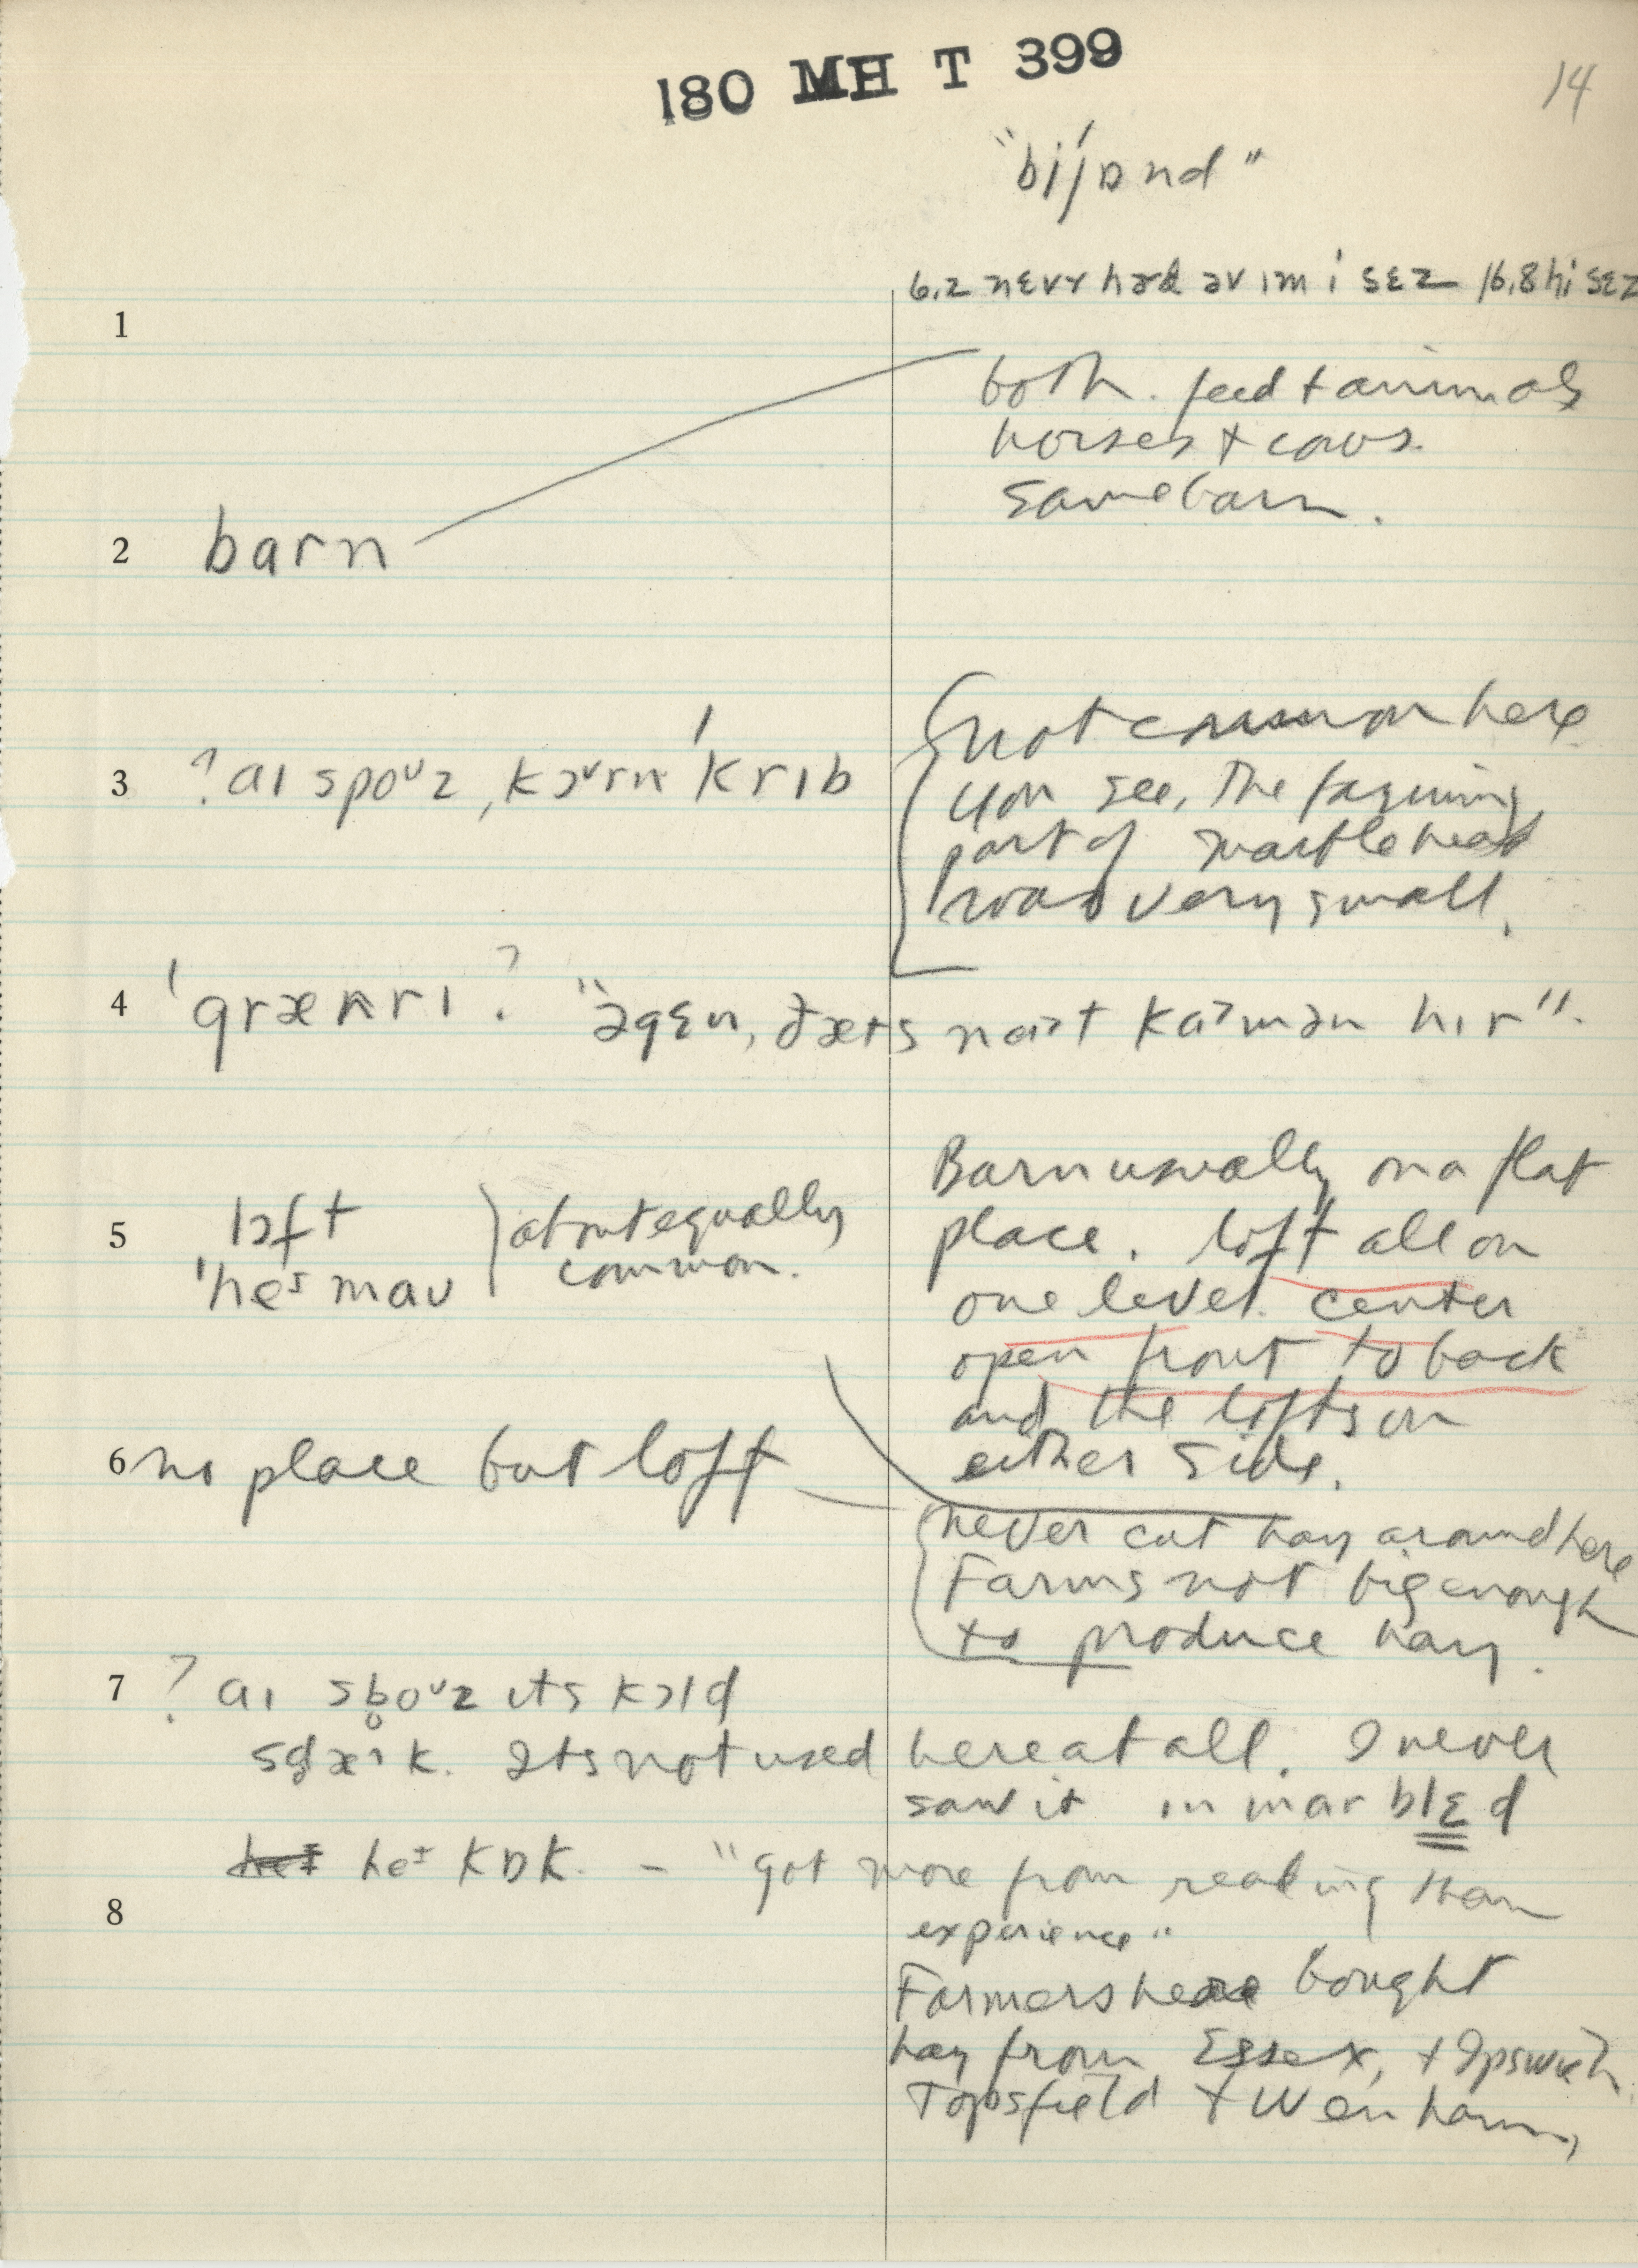 180 MH T 399
14
"bi'jɒnd"
6.2 nɛvɤ həd əv ɪm i sɛz 16.8 hi sɛz
1
both. feed + animals
horses + cows.
same barn.
2 barn
3 ? aɪ spoᵘz ˌkɔᵛrn 'krɪb
not common here
you see, the farming
part of Marblehead
was very small.
4 'grænrɪ ? "əgɛn, ðæts naˀt kaˀmən hɪr".
5 lɔft
'heᶦmaʊ
about equally
common.
Barn usually on a flat
place. loft all on
one level. center
open front to back
and the lofts on
either side.
6 no place but loft
never cut hay around here
Farms not big enough
to produce hay.
7 ? aɪ sb̥oᵘz ɪts kɔld
sd̥æˀk. Its not used here at all. I never
saw it in marblɛd
heᶦ heᶦ kɒk. - "got more from reading than
experience"
8
Farmers here bought
hay from Essex, + Ipswich
Topsfield + Wenham,